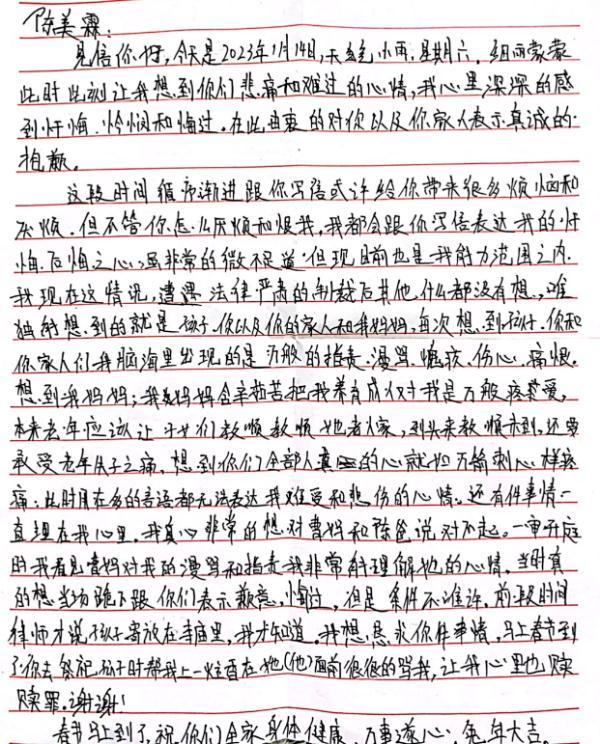 陈美霖:
见信你好,今天是2023年1月14日,天气小雨,星期六。细雨蒙蒙
此时此刻让我想到你们悲痛和难过的心情,我心里深深的感
到忏悔、怜悯和悔过。在此由衷的对你以及你家人表示真诚的
抱歉。
这段时间循序渐进跟你写信或许给你带来很多烦恼和
厌烦。但不管你怎么厌烦和恨我,我都会跟你写信表达我的忏
悔、后悔之心,虽非常的微不足道,但现目前也是我能力范围之内。
我现在这情况,遭遇法律严肃的制裁后其他什么都没有想,唯
独能想到的就是孩子、你以及你的家人和我妈妈,每次想到孩子、你和
你家人们我脑海里出现的是万般的指责、漫骂、憔疾、伤心、痛恨。
想到我妈妈:我妈妈含辛茹苦把我养育成人对我是万般疼爱,
本来老年应该让子女们教顺教顺她老人家,到头来教顺未到,还要
承受老年失子之痛,想到你们全部人真的心就如万箭刺心样疼
痛;此时用在多的言语都无法表达我难受和悲伤的心情。还有件事情一
直埋在我心里,我真心非常的想对曹妈和陈爸说对不起。一审开庭
时我看见曹妈对我的漫骂和指责我非常能理解她的心情,当时真
的想当场跪下跟你们表示歉意,悔过,但是条件不准许,前段时间
律师才说孩子寄放在寺庙里,我才知道,我想恳求你件事情,马上春节到
了你去祭祀孩子时帮我上一炷香在她(他)面前很很的骂我,让我心里也赎
赎罪。谢谢!
春节马上到了,祝你们全家身体健康、万事遂心、兔年大吉。